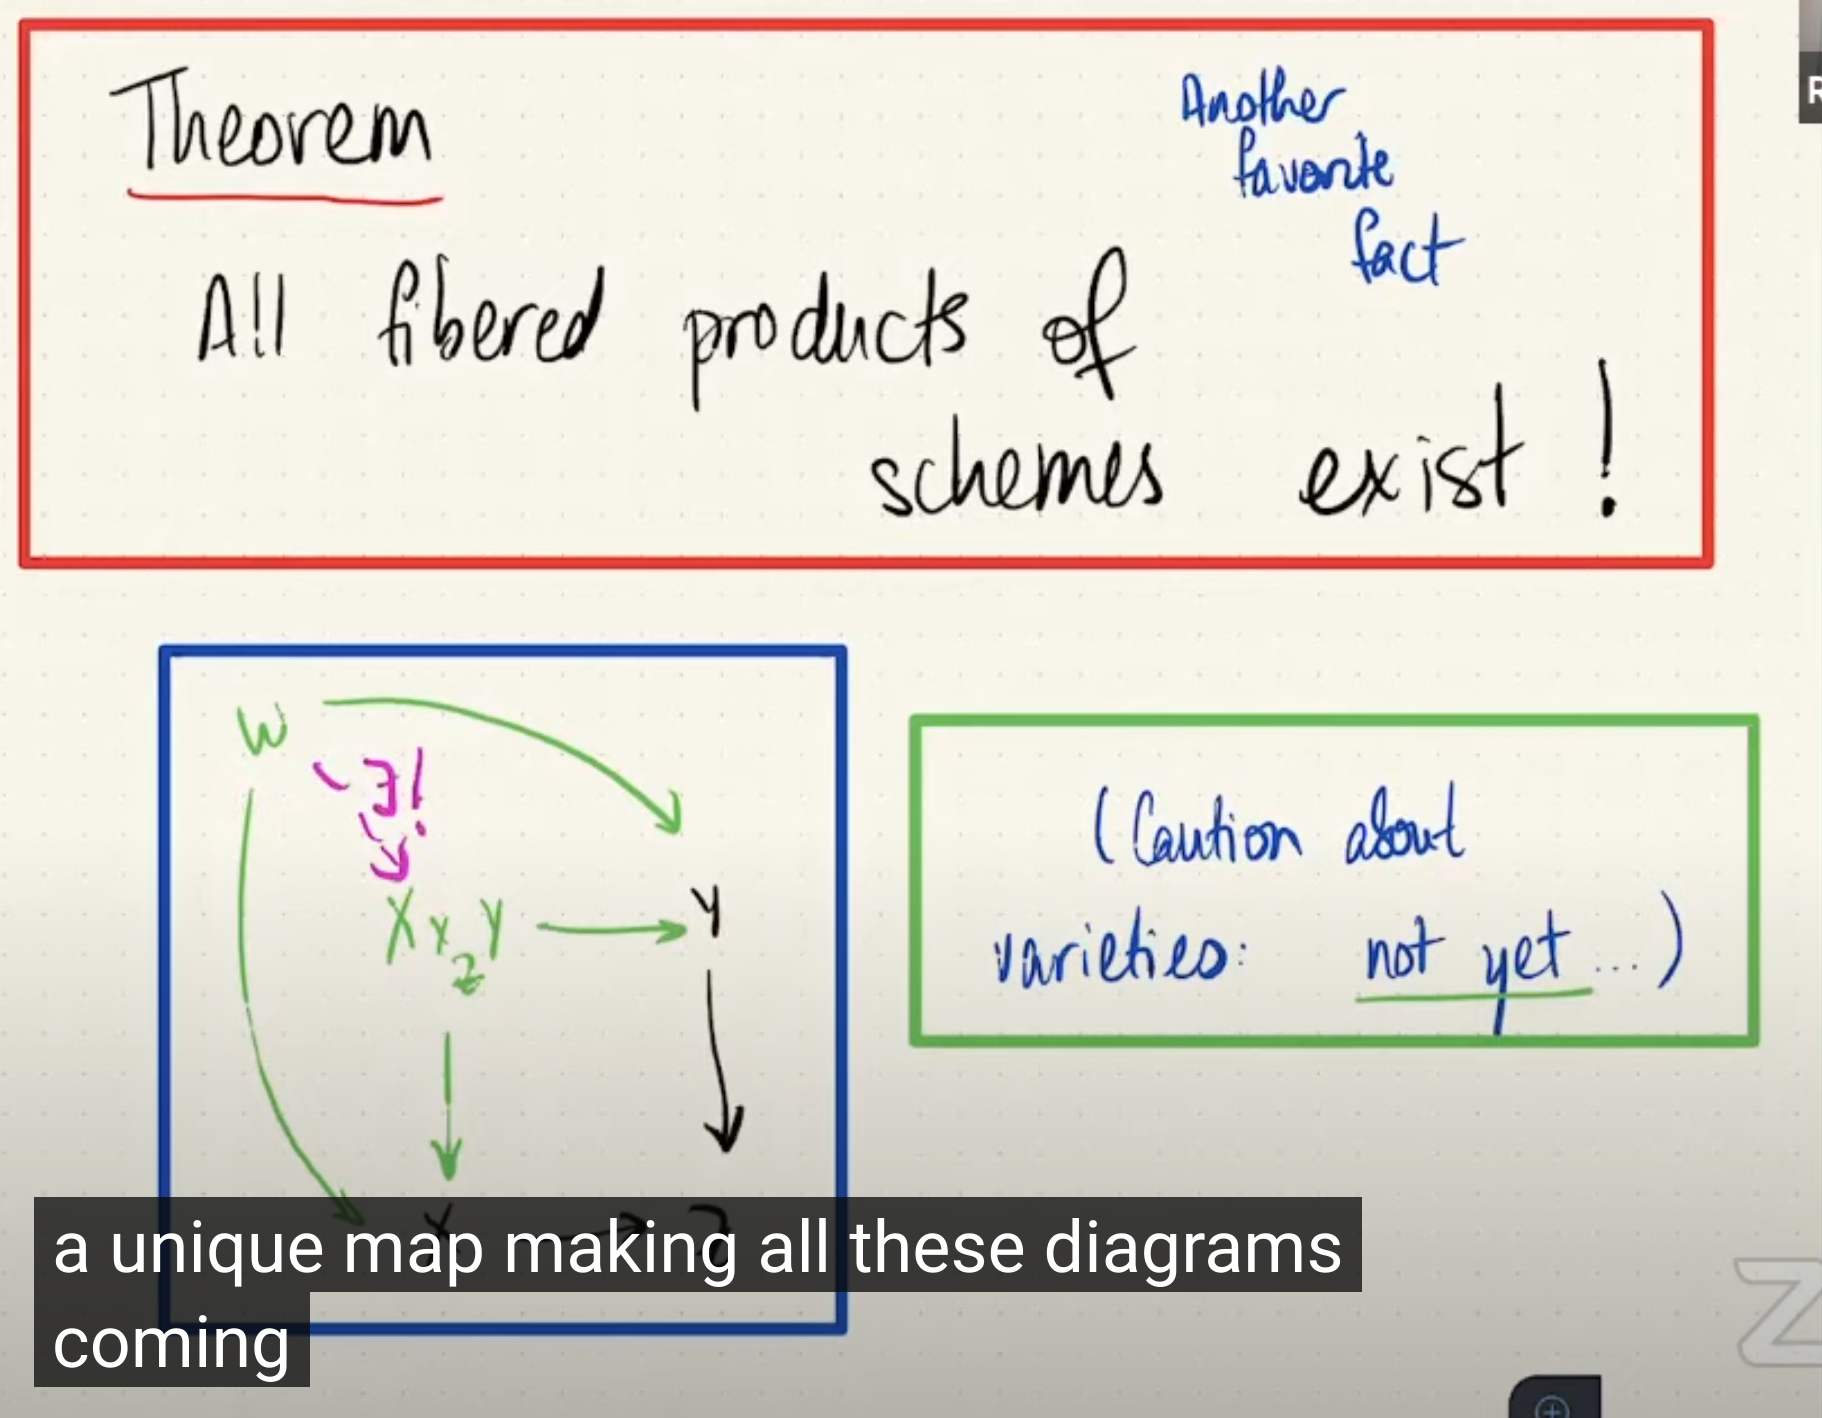 Theorem
Another
favorite
fact
All fibered products of
schemes exist!
W
∃!
X ×_Z Y
Y
X
Z
(Caution about
varieties: not yet...)
a unique map making all these diagrams
coming
R
Z